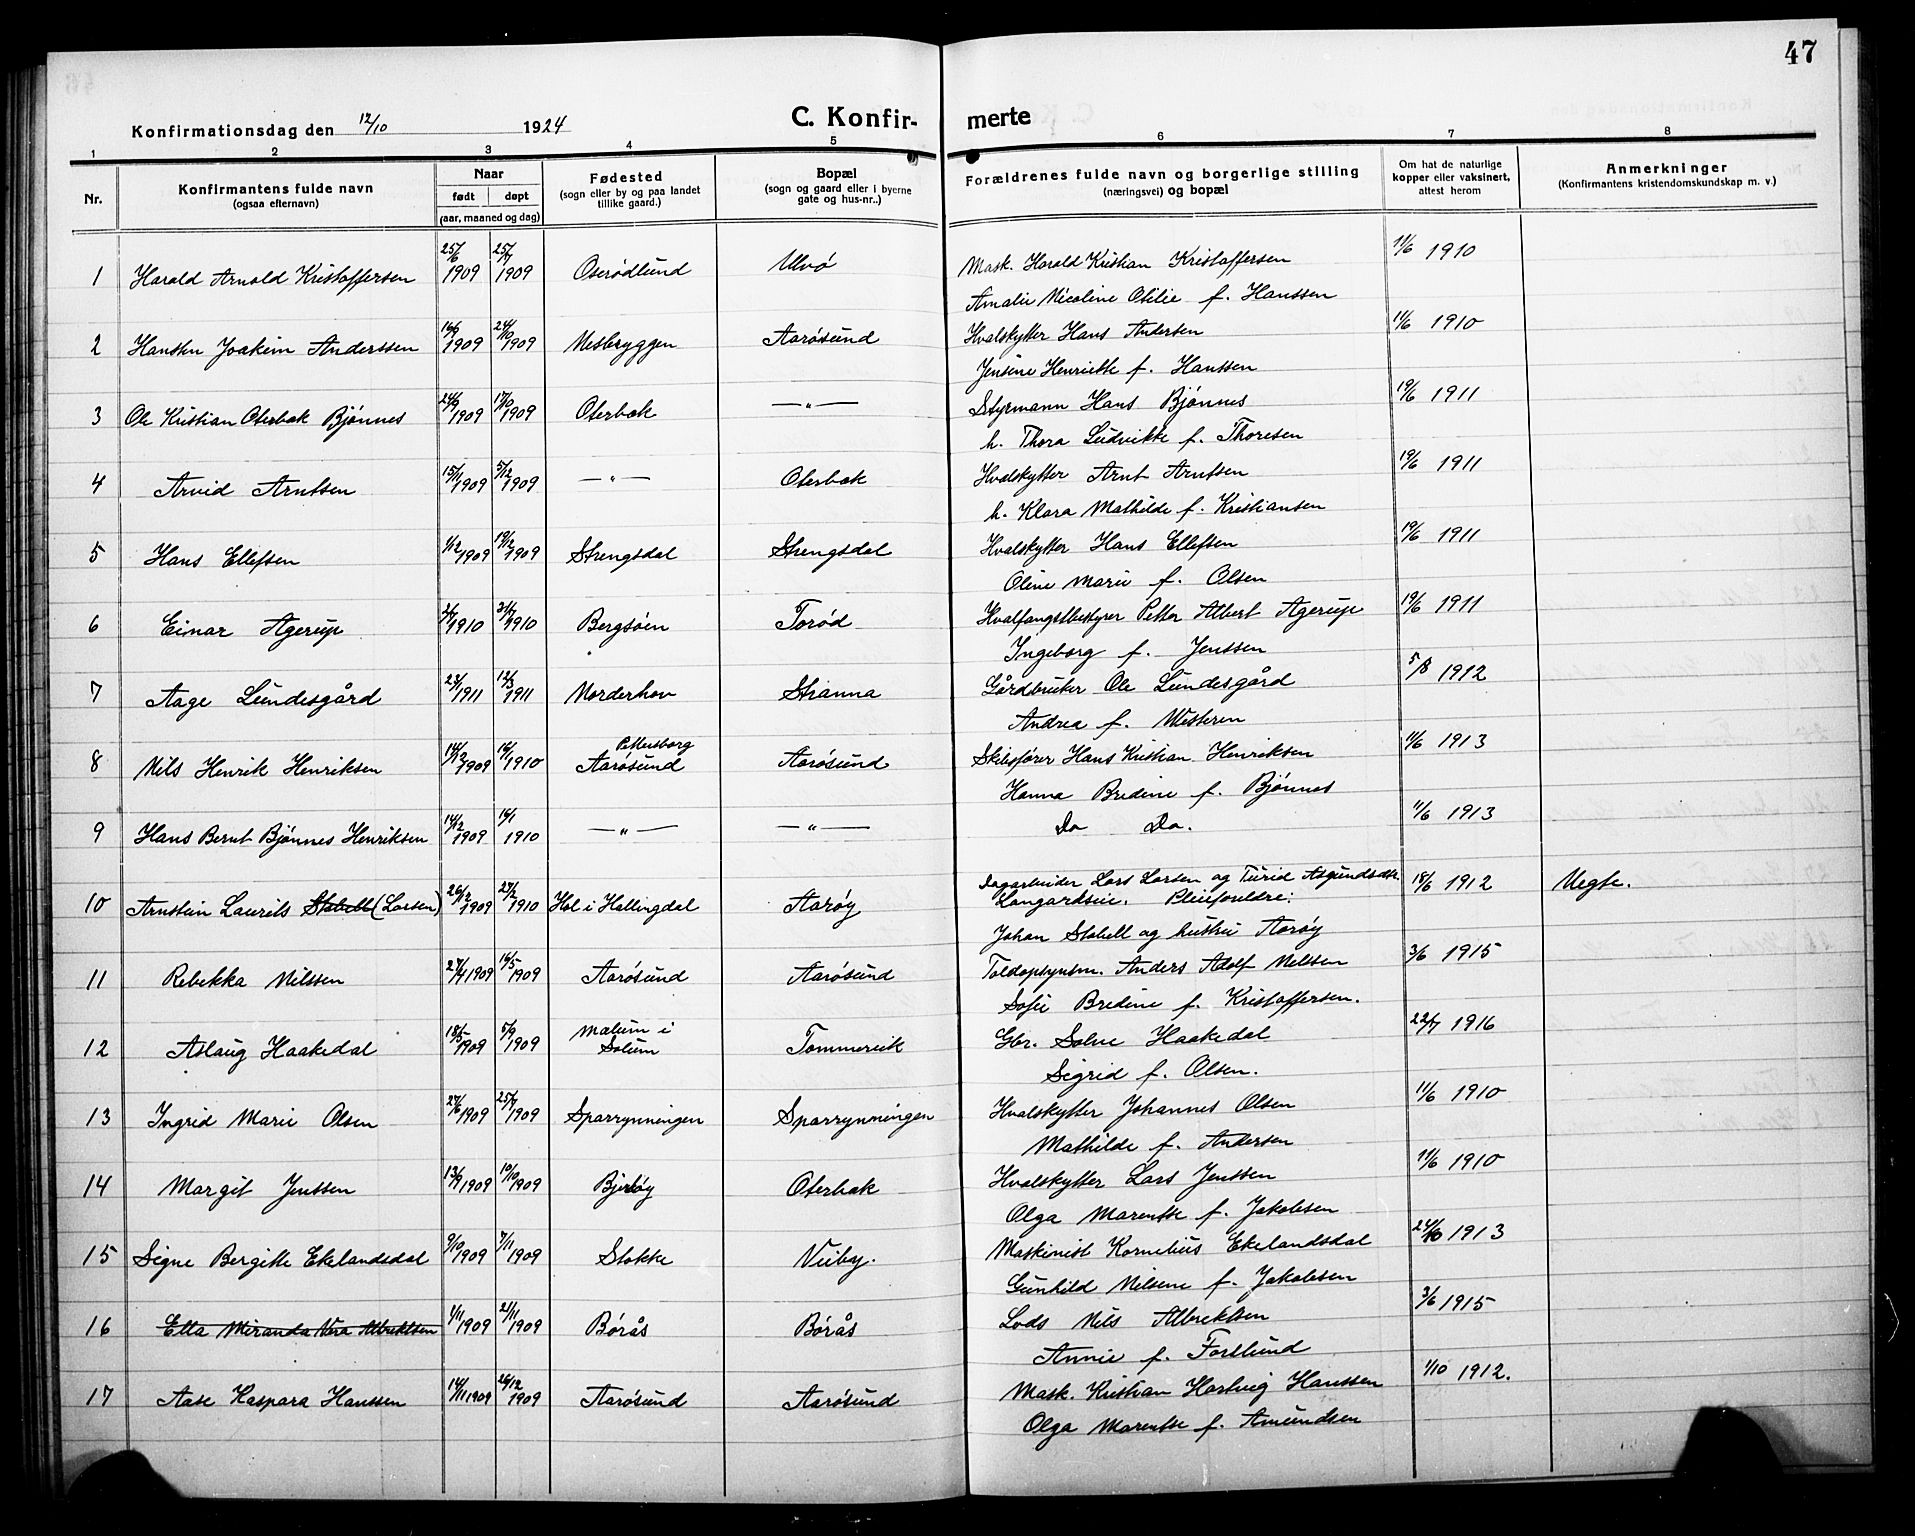 47
Konfirmationsdag den 12/10 1924 C. Konfir- merte
1 2 3 4 5 6 7 8
Nr. Konfirmantens fulde navn (ogsaa efternavn) Naar født døpt (aar, maaned og dag) Fødested (sogn eller by og paa landet tillike gaard.) Bopæl (sogn og gaard eller i byerne gate og hus-nr..) Forældrenes fulde navn og borgerlige stilling (næringsvei) og bopæl Om hat de naturlige kopper eller vaksinert, attest herom Anmerkninger (Konfirmantens kristendomskundskap m. v.)
1 Harald Arnold Kristoffersen 25/6 1909 25/7 1909 Oserødlund Ulvø Mask. Harald Kristian Kristoffersen 11/6 1910
Amalie Nicoline Otilie f. Hanssen
2 Joakim Anderssen 16/9 1909 24/10 1909 Nesbryggen Aarøsund Hvalskytter Hans Andersen 11/6 1910
Jensine Henriette f. Hanssen
3 Ole Kristian Oterbæk Bjønnes 24/9 1909 17/10 1909 Oterbæk —"— Styrmann Hans Bjønnes 19/6 1911
h. Thora Ludvikke f. Thoresen
4 Arvid Arntsen 15/11 1909 5/12 1909 —"— Oterbæk Hvalskytter Arnt Arntsen 19/6 1911
h. Klara Mathilde f. Kristiansen
5 Hans Ellefsen 1/12 1909 19/12 1909 Strengsdal Strengsdal Hvalskytter Hans Ellefsen 19/6 1911
Oline Marie f. Olsen
6 Einar Agerup 1910 31/7 1910 Bergsøen Torød Hvalfangstbestyrer Petter Albert Agerup 19/6 1911
Ingeborg f. Jenssen
7 Aage Lundesgård 23/1 1911 12/3 1911 Norderhov Stranna Gårdbruker Ole Lundesgård 5/8 1912
Andrea f. Westeren
8 Nils Henrik Henriksen 14/12 1909 16/1 1910 Pettersborg Aarøsund Aarøsund Skibsfører Hans Kristian Henriksen 11/6 1913
Hanna Bredine f. Bjønnes
9 Hans Bernt Bjønnes Henriksen 14/12 1909 16/1 1910 —"— —"— Do Do. 11/6 1913
10 Arnstein Laurits Stabell (Larsen) 26/12 1909 27/2 1910 Hol i Hallingdal Aarøy Dagarbeider Lars Larsen og Turid Asgundsdtr. 18/6 1912 Uegte.
Langardseie. Pleieforeldre:
Johan Stabell og hustru Aarøy
11 Rebekka Nilssen 27/4 1909 16/5 1909 Aarøsund Aarøsund Toldopsynsm. Anders Adolf Nilsen 3/6 1915
Sofie Bredine f. Kristoffersen.
12 Aslaug Haakedal 18/5 1909 5/9 1909 Mælum i Solum Tommervik Gbr. Solve Haakedal 22/7 1916
Sigrid f. Olsen.
13 Ingrid Marie Olsen 27/6 1909 25/7 1909 Sparrynningen Sparrynningen Hvalskytter Johannes Olsen 11/6 1910
Mathilde f. Andersen
14 Margit Jenssen 13/9 1909 10/10 1909 Bjerøy Oterbæk Hvalskytter Lars Jenssen 11/6 1910
Olga Marentse f. Jakobsen
15 Signe Bergitte Ekelandsdal 9/10 1909 7/11 1909 Stokke Veiby. Maskinist Kornelius Ekelandsdal 24/10 1913
Gunhild Nilsene f. Jakobsen
16 Ella Miranda Vera Albrektsen 4/11 1909 21/11 1909 Børås Børås Lods Nils Albrektsen 3/6 1915
Annie f. Forslund
17 Aase Kaspara Hanssen 14/11 1909 26/12 1909 Aarøsund Aarøsund Mask. Kristian Hartvig Hanssen 1/10 1912.
Olga Marentse f. Amundsen